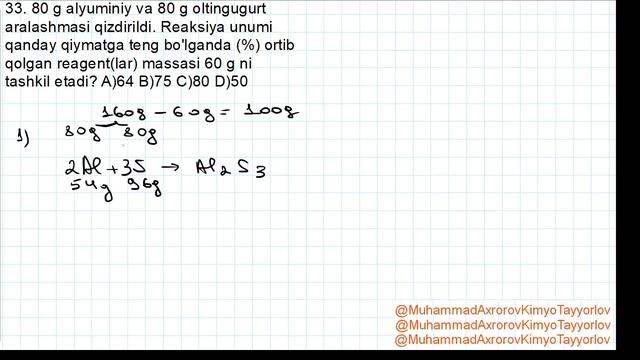 33. 80 g alyuminiy va 80 g oltingugurt
aralashmasi qizdirildi. Reaksiya unumi
qanday qiymatga teng bo'lganda (%) ortib
qolgan reagent(lar) massasi 60 g ni
tashkil etadi? A)64 B)75 C)80 D)50
160g - 60g = 100g
1) 80g 80g
2Al + 3S → Al2S3
54g 96g
@MuhammadAxrorovKimyoTayyorlov
@MuhammadAxrorovKimyoTayyorlov
@MuhammadAxrorovKimyoTayyorlov